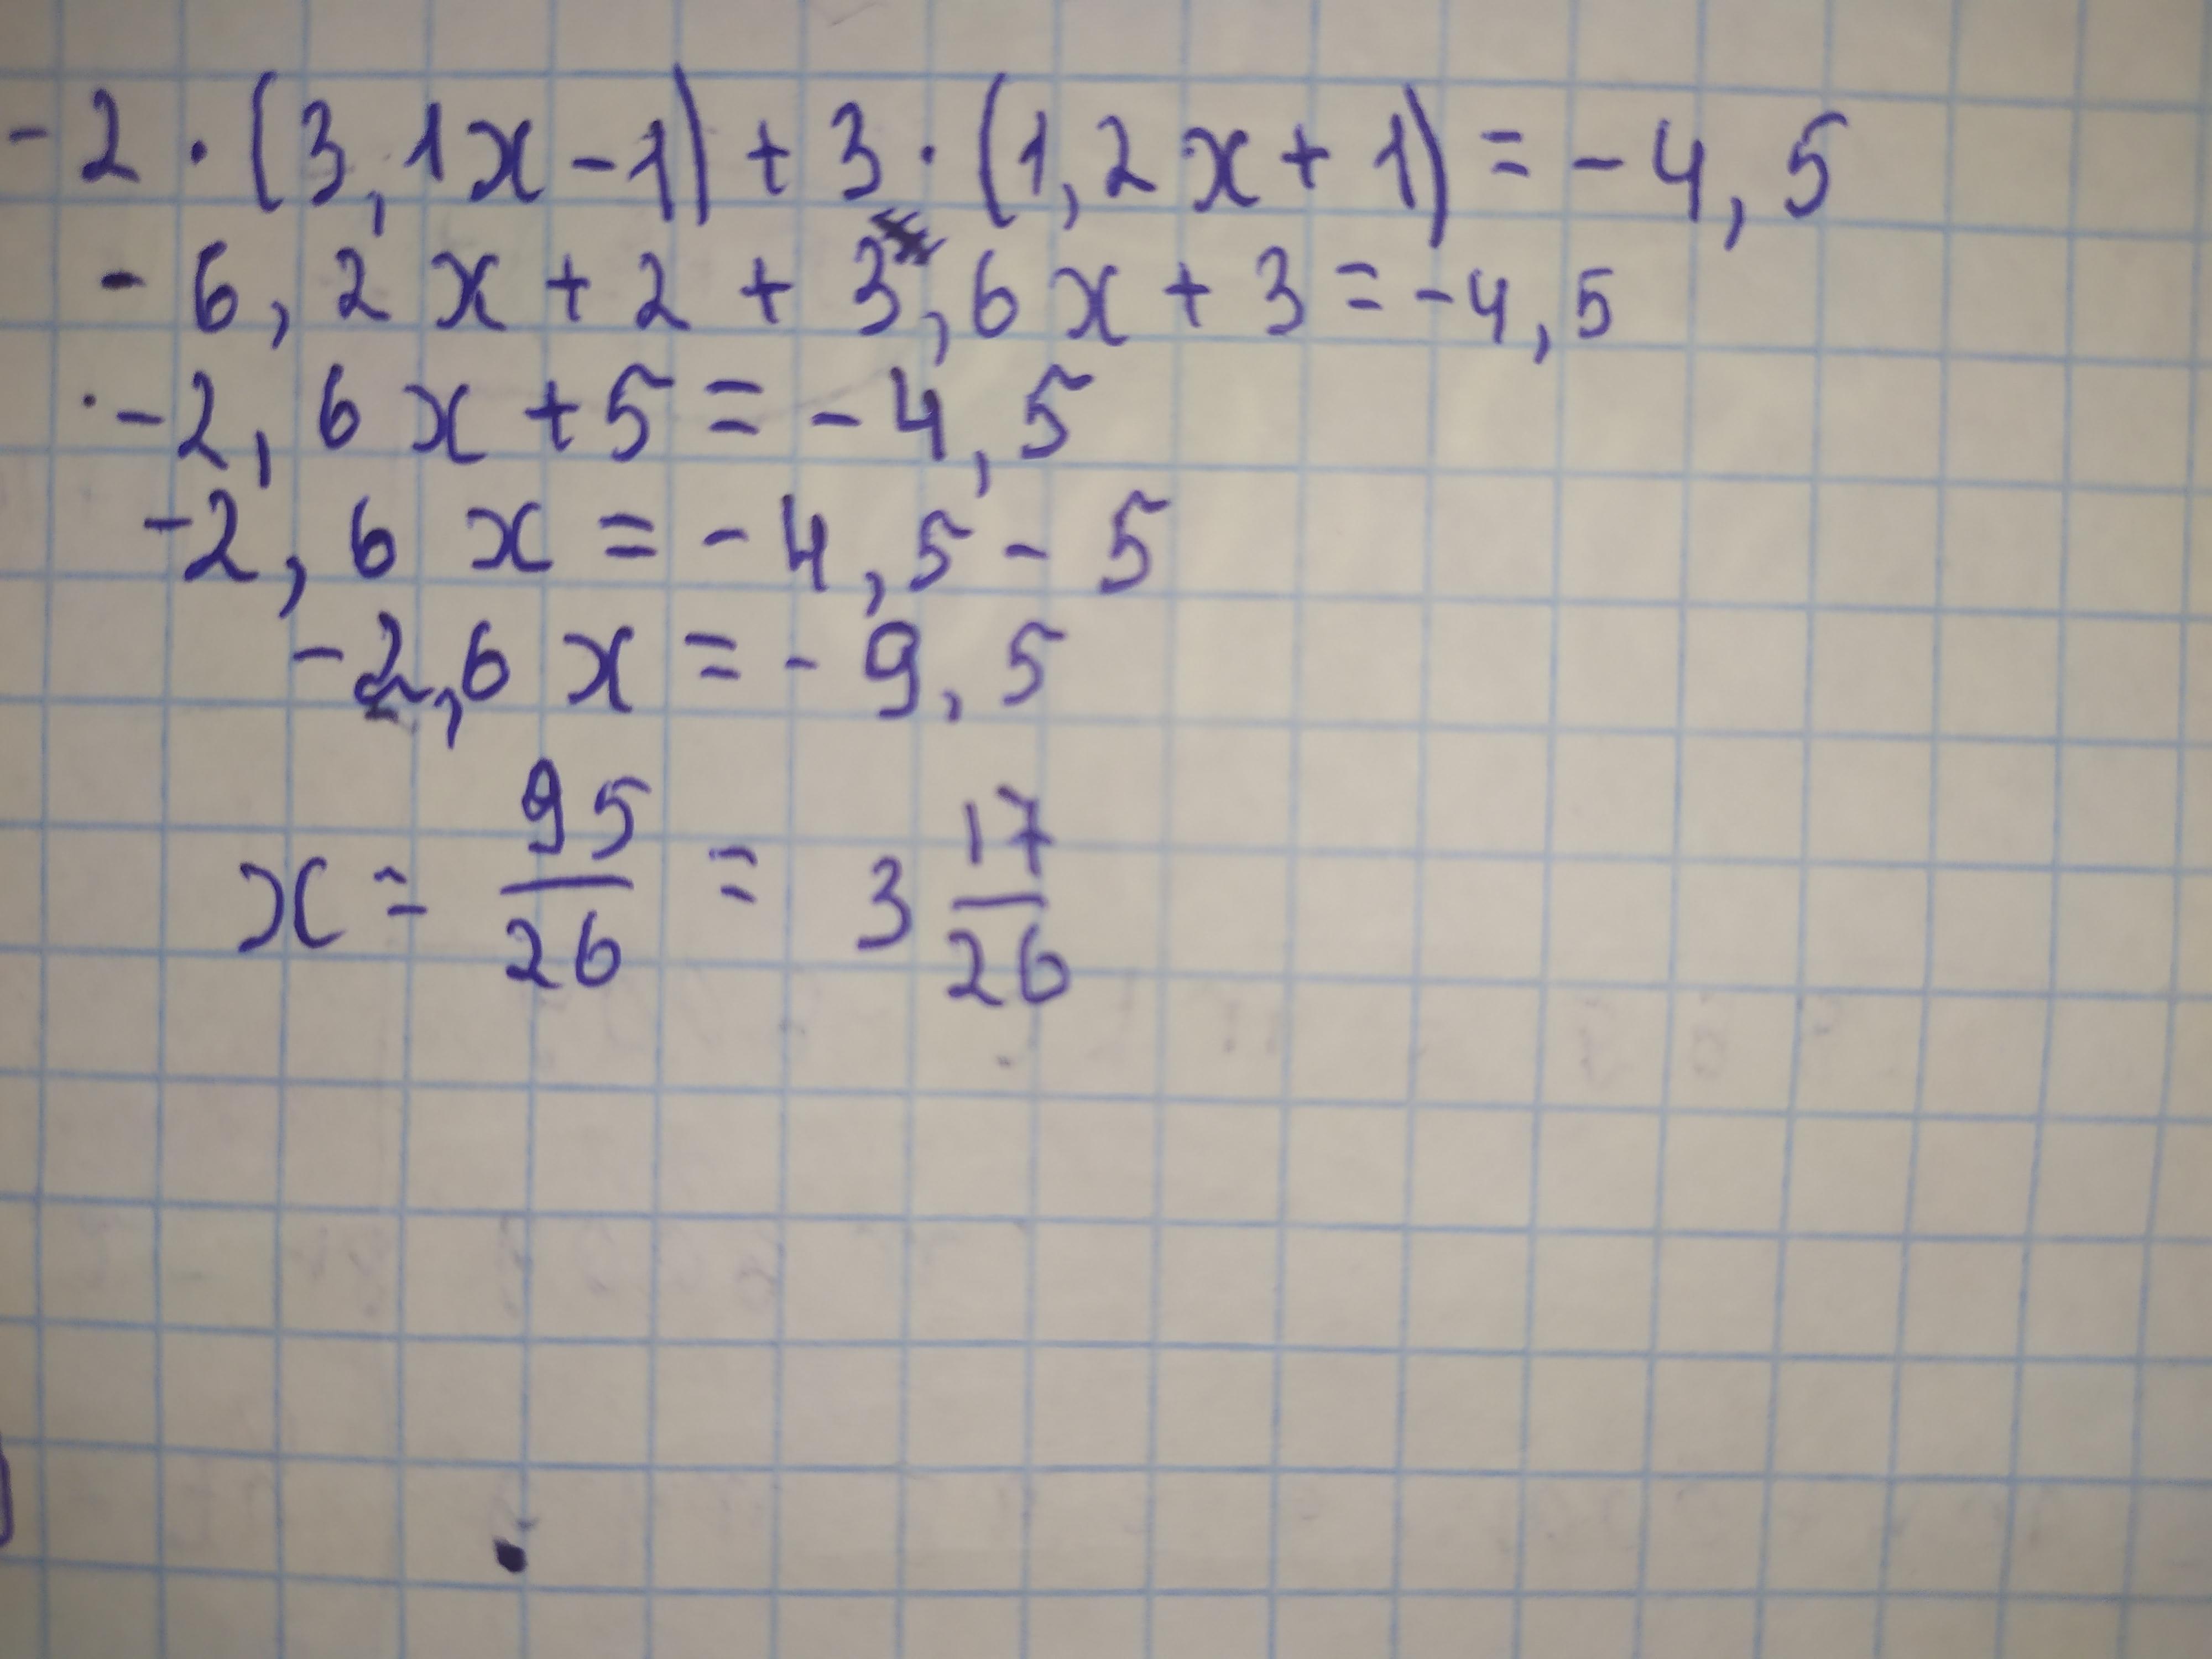 -2 · (3,1x-1) + 3 · (1,2x+1) = -4,5
-6,2x+2+3,6x+3=-4,5
-2,6x+5=-4,5
-2,6x=-4,5-5
-2,6x=-9,5
x = 95/26 = 3 17/26